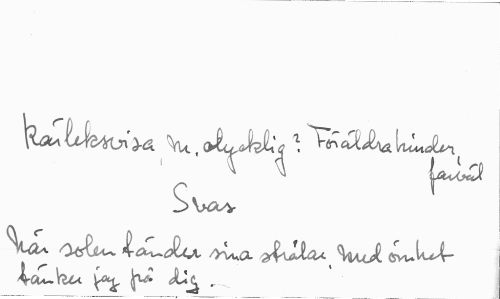 Kärleksvisa, m. olycklig? Föräldrahinder,
farväl
Svas
När solen tänder sina strålar, med ömhet
tänker jag på dig.